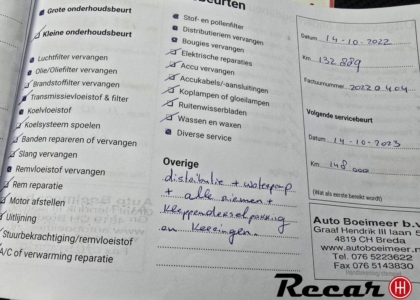 beurten
Grote onderhoudsbeurt
Kleine onderhoudsbeurt
Luchtfilter vervangen
Olie/Oliefilter vervangen
Brandstoffilter vervangen
Transmissievloeistof & filter
Koelvloeistof
Koelsysteem spoelen
Banden repareren of vervangen
Slang vervangen
Remvloeistof vervangen
Rem reparatie
Motor afstellen
Uitlijning
Stuurbekrachtiging/remvloeistof
A/C of verwarming reparatie
Stof- en pollenfilter
Distributieriem vervangen
Bougies vervangen
Elektrische reparaties
Accu vervangen
Accukabels/-aansluitingen
Koplampen of gloeilampen
Ruitenwisserbladen
Wassen en waxen
Diverse service
Overige
distributie + waterpomp
+ alle riemen +
kleppendekselpakking
en keerringen.
Datum 14-10-2022
Km. 132.889
Factuurnummer 2022.0.404
Volgende servicebeurt
Datum 14-10-2023
Km. 148.000
(Wat als eerste bereikt wordt)
Auto Boeimeer b.v.
Graaf Hendrik III laan
4819 CH Breda
www.autoboeimeer.n
Tel. 076 5223622
Fax 076 5143830
Recar